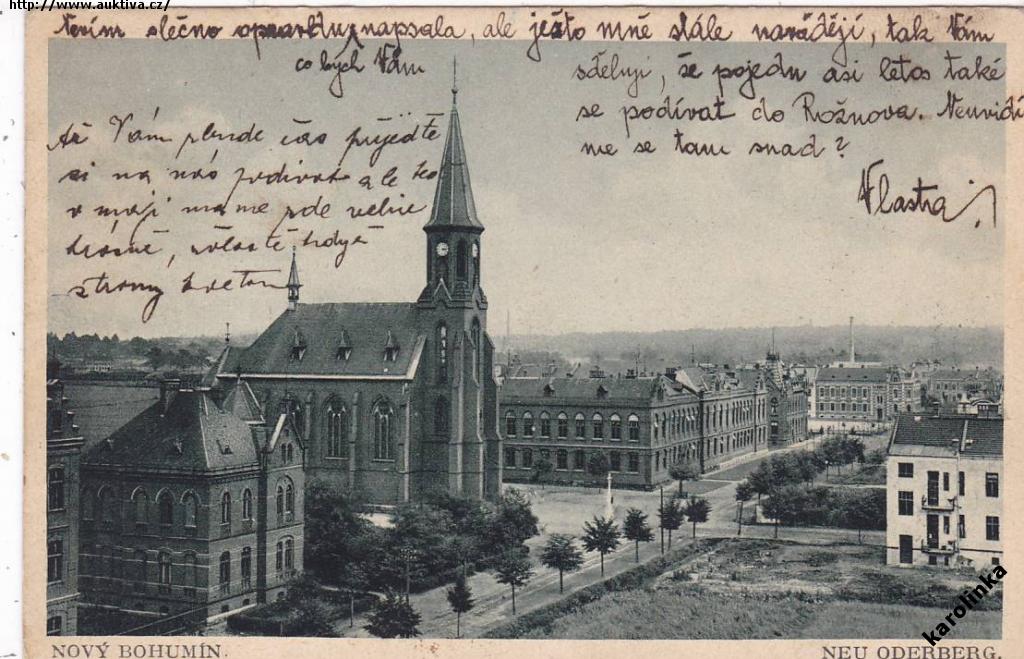 http://www.auktiva.cz/
slečno napsala, ale ješto mně stále navádějí, tak Vám
co bych Vám
sděluji, že pojedu asi letos také
se podívat do Rožnova. Neuvidí
me se tam snad?
Vlasta
Až Vám bude čas přijeďte
si na nás podívat ale to
v máji máme zde velice
krásně, když
stromy kvetou
NOVÝ BOHUMÍN.
NEU ODERBERG.
karolinka